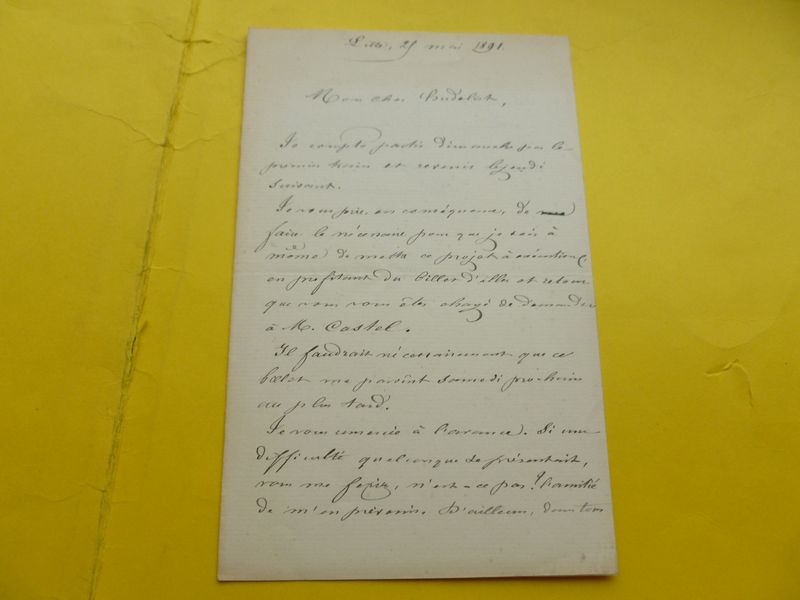 Lille, 25 mai 1891.
Mon cher
Je compte partir dimanche par le
premier train et revenir le jeudi
suivant.
Je vous prie, en conséquence, de
faire le nécessaire pour que je sois à
même de mettre ce projet à exécution
en profitant du billet d'aller et retour
que vous vous êtes chargé de demander
à M. Castel.
Il faudrait nécessairement que ce
billet me parvînt samedi prochain
au plus tard.
Je vous remercie à l'avance. Si une
difficulté quelconque se présentait,
vous me feriez, n'est-ce pas? l'amitié
de m'en prévenir. D'ailleurs, dans tous